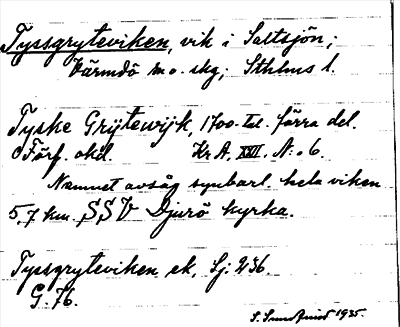 Tyssgryteviken, vik i Saltsjön;
Värmdö m o. skg; Sthlms l.
Tyske Grÿtewijk, 1700-tal. förra del.
Förf. okd. Kr A. XXII. N:o 6.
Namnet avsåg synbarl. hela viken
5,7 km. SSV Djurö kyrka.
Tyssgryteviken ek, Lj: 236.
G. 76.
S. 1935.